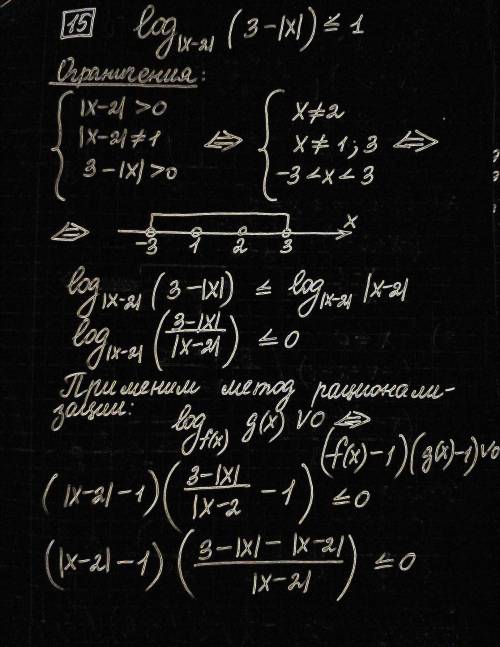 15 log_{|x-2|} (3-|x|) ≤ 1
Ограничения:
{ |x-2| > 0 ⇔ { x ≠ 2
|x-2| ≠ 1 x ≠ 1; 3 ⇔
3-|x| > 0 -3 < x < 3
⇔ x
-3 1 2 3
log_{|x-2|} (3-|x|) ≤ log_{|x-2|} |x-2|
log_{|x-2|} (\frac{3-|x|}{|x-2|}) ≤ 0
Применим метод рационали-
зации: log_{f(x)} g(x) ∨ 0 ⇔
(f(x)-1)(g(x)-1) ∨ 0
(|x-2|-1)(\frac{3-|x|}{|x-2} - 1) ≤ 0
(|x-2|-1)(\frac{3-|x|-|x-2|}{|x-2|}) ≤ 0